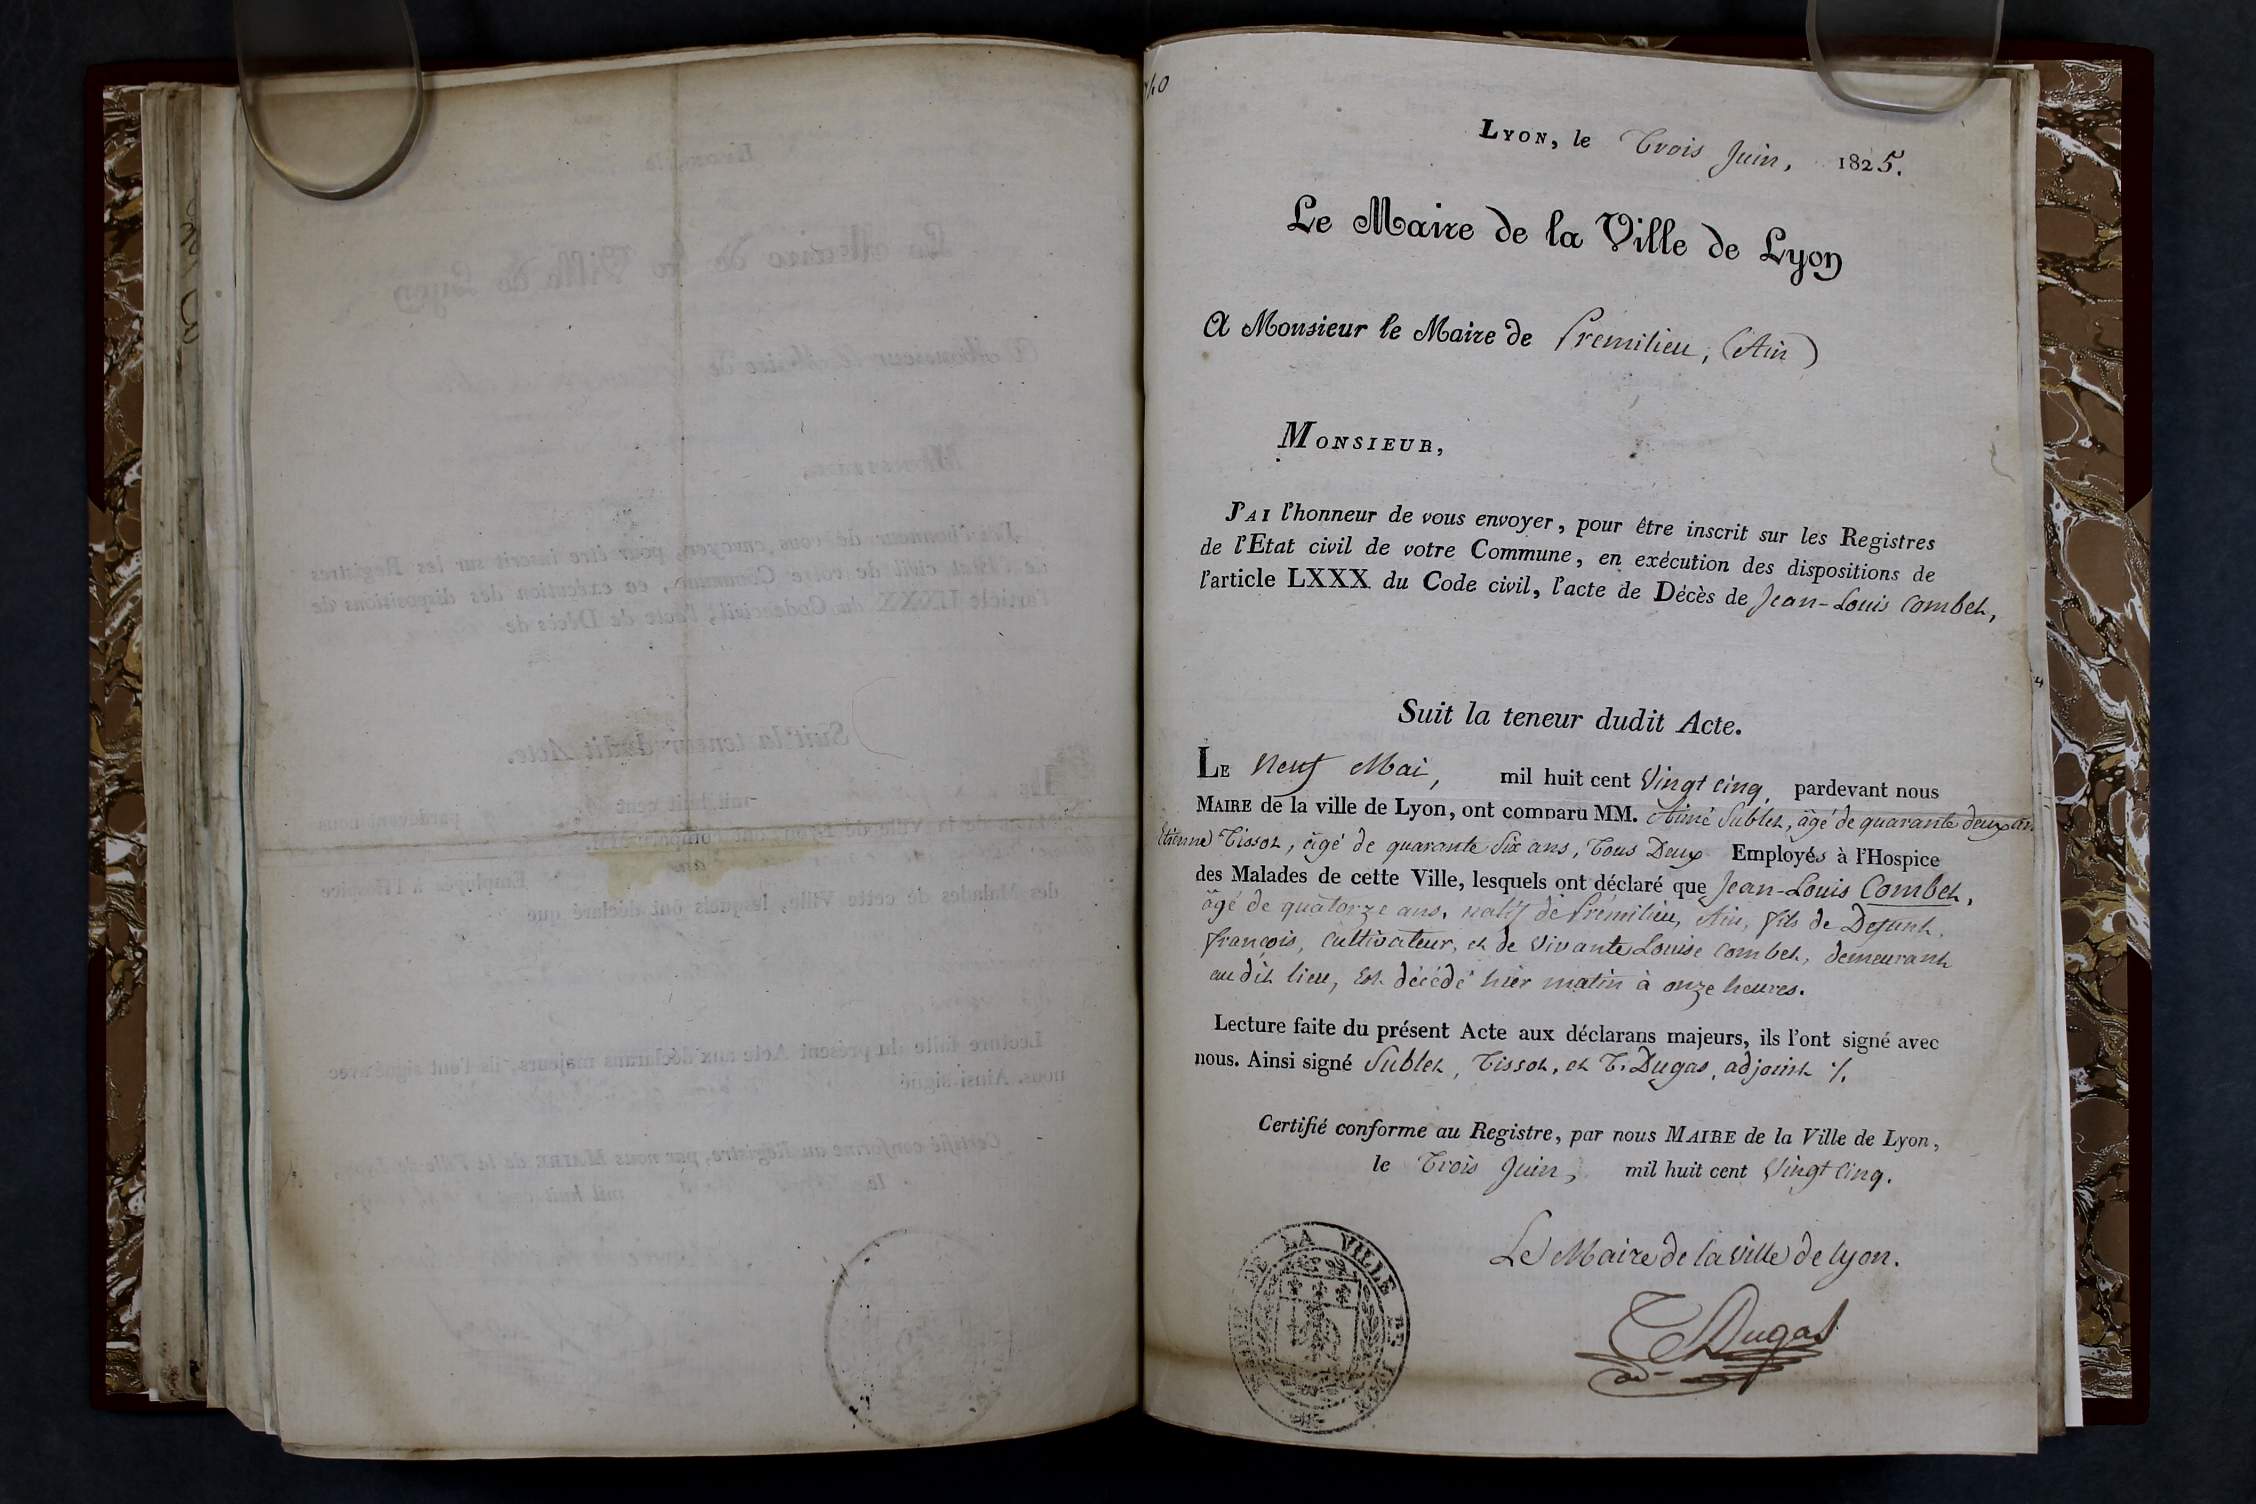 Lyon, le Trois Juin, 1825.
Le Maire de la Ville de Lyon
A Monsieur le Maire de Premilieu, (Ain)
Monsieur,
J'ai l'honneur de vous envoyer, pour être inscrit sur les Registres
de l'Etat civil de votre Commune, en exécution des dispositions de
l'article LXXX du Code civil, l'acte de Décès de Jean-Louis Combet,
Suit la teneur dudit Acte.
Le Neuf Mai, mil huit cent Vingt cinq, pardevant nous
Maire de la ville de Lyon, ont comparu MM. Aimé Sublet, âgé de quarante deux an
Etienne Tissot, âgé de quarante Six ans, Tous Deux Employés à l'Hospice
des Malades de cette Ville, lesquels ont déclaré que Jean-Louis Combet,
âgé de quatorze ans, natif de Prémilieu, Ain, fils de Defunt
françois, Cultivateur, et de Vivante Louise Combet, demeurant
au dit lieu, Est décédé hier matin à onze heures.
Lecture faite du présent Acte aux déclarans majeurs, ils l'ont signé avec
nous. Ainsi signé Sublet, Tissot, et T. Dugas, adjoint ./.
Certifié conforme au Registre, par nous Maire de la Ville de Lyon,
le Trois Juin, mil huit cent Vingt Cinq.
Le Maire de la Ville de Lyon.
T Dugas
DE LA VILLE DE LYON